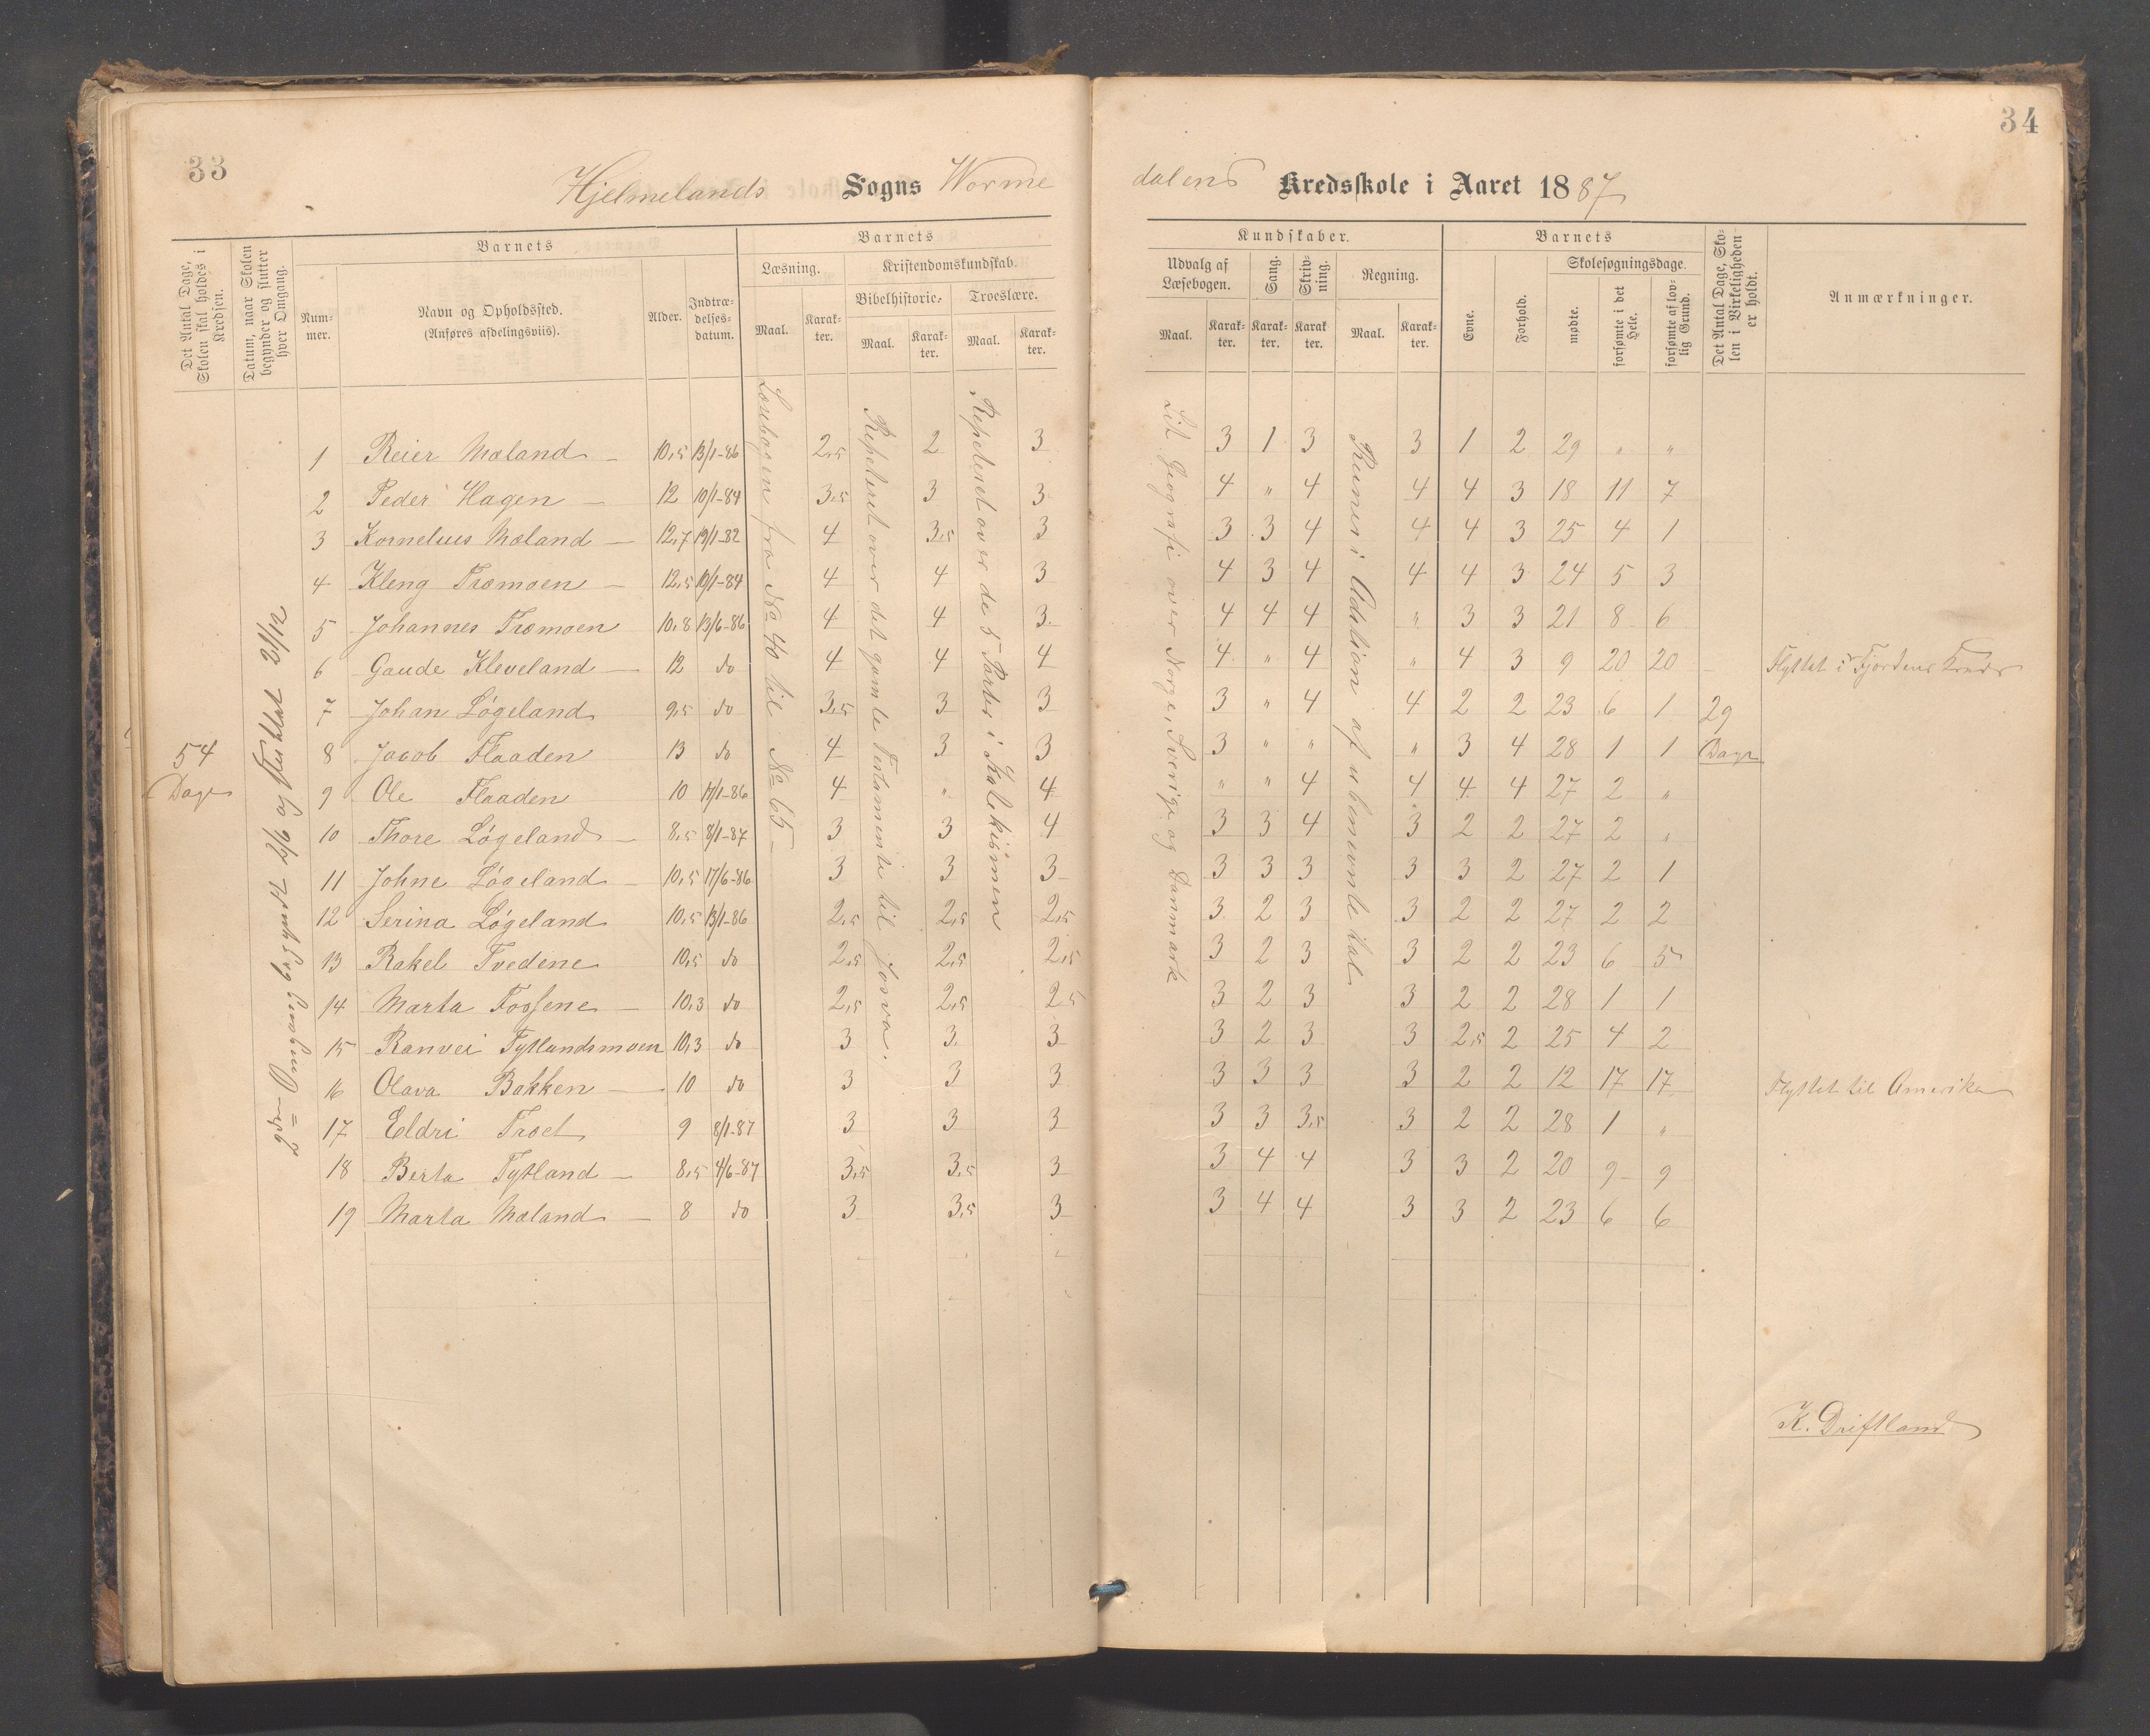 33
34
Hjelmelands Sogns Worme
dalens Kredsskole i Aaret 1887
Det Antal Dage, Skolen skal holdes i Kredsen.
Datum, naar Skolen begynder og slutter hver Omgang.
Barnets
Num-
mer.
Navn og Opholdssted.
(Anføres afdelingsviis).
Alder.
Indtræ-
delses-
datum.
Barnets
Læsning.
Kristendomskundskab.
Bibelhistorie.
Troeslære.
Maal.
Karak-
ter.
Maal.
Karak-
ter.
Maal.
Karak-
ter.
Kundskaber.
Udvalg af
Læsebogen.
Sang.
Skriv-
ning.
Regning.
Maal.
Karak-
ter.
Karak-
ter.
Karak
ter.
Maal.
Karak-
ter.
Barnets
Evne.
Forhold.
Skolesøgningsdage.
mødte.
forsømte i det Hele.
forsømte af lov-
lig Grund.
Det Antal Dage, Sko-
len i Virkeligheden
er holdt.
Anmærkninger.
54
Dage
2den Omgang begyndt 2/6 og sluttet 21/12
Læsebogen fra No 40 til No 65
Repeteret over det gamle Testamente til Josva.
Repeteret over de 5 Parter i Katekismen
Lit Geografi over Norge, Sverige og Danmark
Renner i Adstion af ubenevnte Tal
1 Reier Mæland 10,5 13/1-86 2,5 2 3 3 1 3 3 1 2 29 " "
2 Peder Hagen 12 10/1-84 3,5 3 3 4 " 4 4 4 3 18 11 7
3 Kornelius Mæland 12,7 19/1-82 4 3,5 3 3 3 4 4 4 3 25 4 1
4 Kleng Træmoen 12,5 10/1-84 4 4 3 4 3 4 4 4 3 24 5 3
5 Johannes Træmoen 10,8 13/6-86 4 4 3 4 4 4 " 3 3 21 8 6
6 Gaude Kleveland 12 do 4 4 4 4 " 4 " 4 3 9 20 20 Flyttet i Fjordens Kreds
7 Johan Løgeland 9,5 do 3,5 3 3 3 " 4 4 2 2 23 6 1 29
8 Jacob Flaaden 13 do 4 3 3 3 " " " 3 4 28 1 1 Dage
9 Ole Flaaden 10 17/1-86 4 " 4 " " 4 4 4 4 27 2 "
10 Thore Løgeland 8,5 8/1-87 3 3 4 3 3 4 3 2 2 27 2 "
11 Johne Løgeland 10,5 17/6-86 3 3 3 3 3 3 3 3 2 27 2 1
12 Serina Løgeland 10,5 13/1-86 2,5 2,5 2,5 3 2 3 3 2 2 27 2 2
13 Rakel Tvedene 10,5 do 2,5 2,5 2,5 3 2 3 3 2 2 23 6 5
14 Marta Fossene 10,3 do 2,5 2,5 2,5 3 2 3 3 2 2 28 1 1
15 Ranvei Tytlandsmoen 10,3 do 3 3 3 3 2 3 3 2,5 2 25 4 2
16 Olava Bakken 10 do 3 3 3 3 3 3 3 2 2 12 17 17 Flyttet til Amerika
17 Eldri Træet 9 8/1-87 3 3 3 3 3 3,5 3 2 2 28 1 "
18 Berta Tytland 8,5 4/6-87 3,5 3,5 3 3 4 4 3 3 2 20 9 9
19 Marta Mæland 8 do 3 3,5 3 3 4 4 3 3 2 23 6 6
K. Driftland